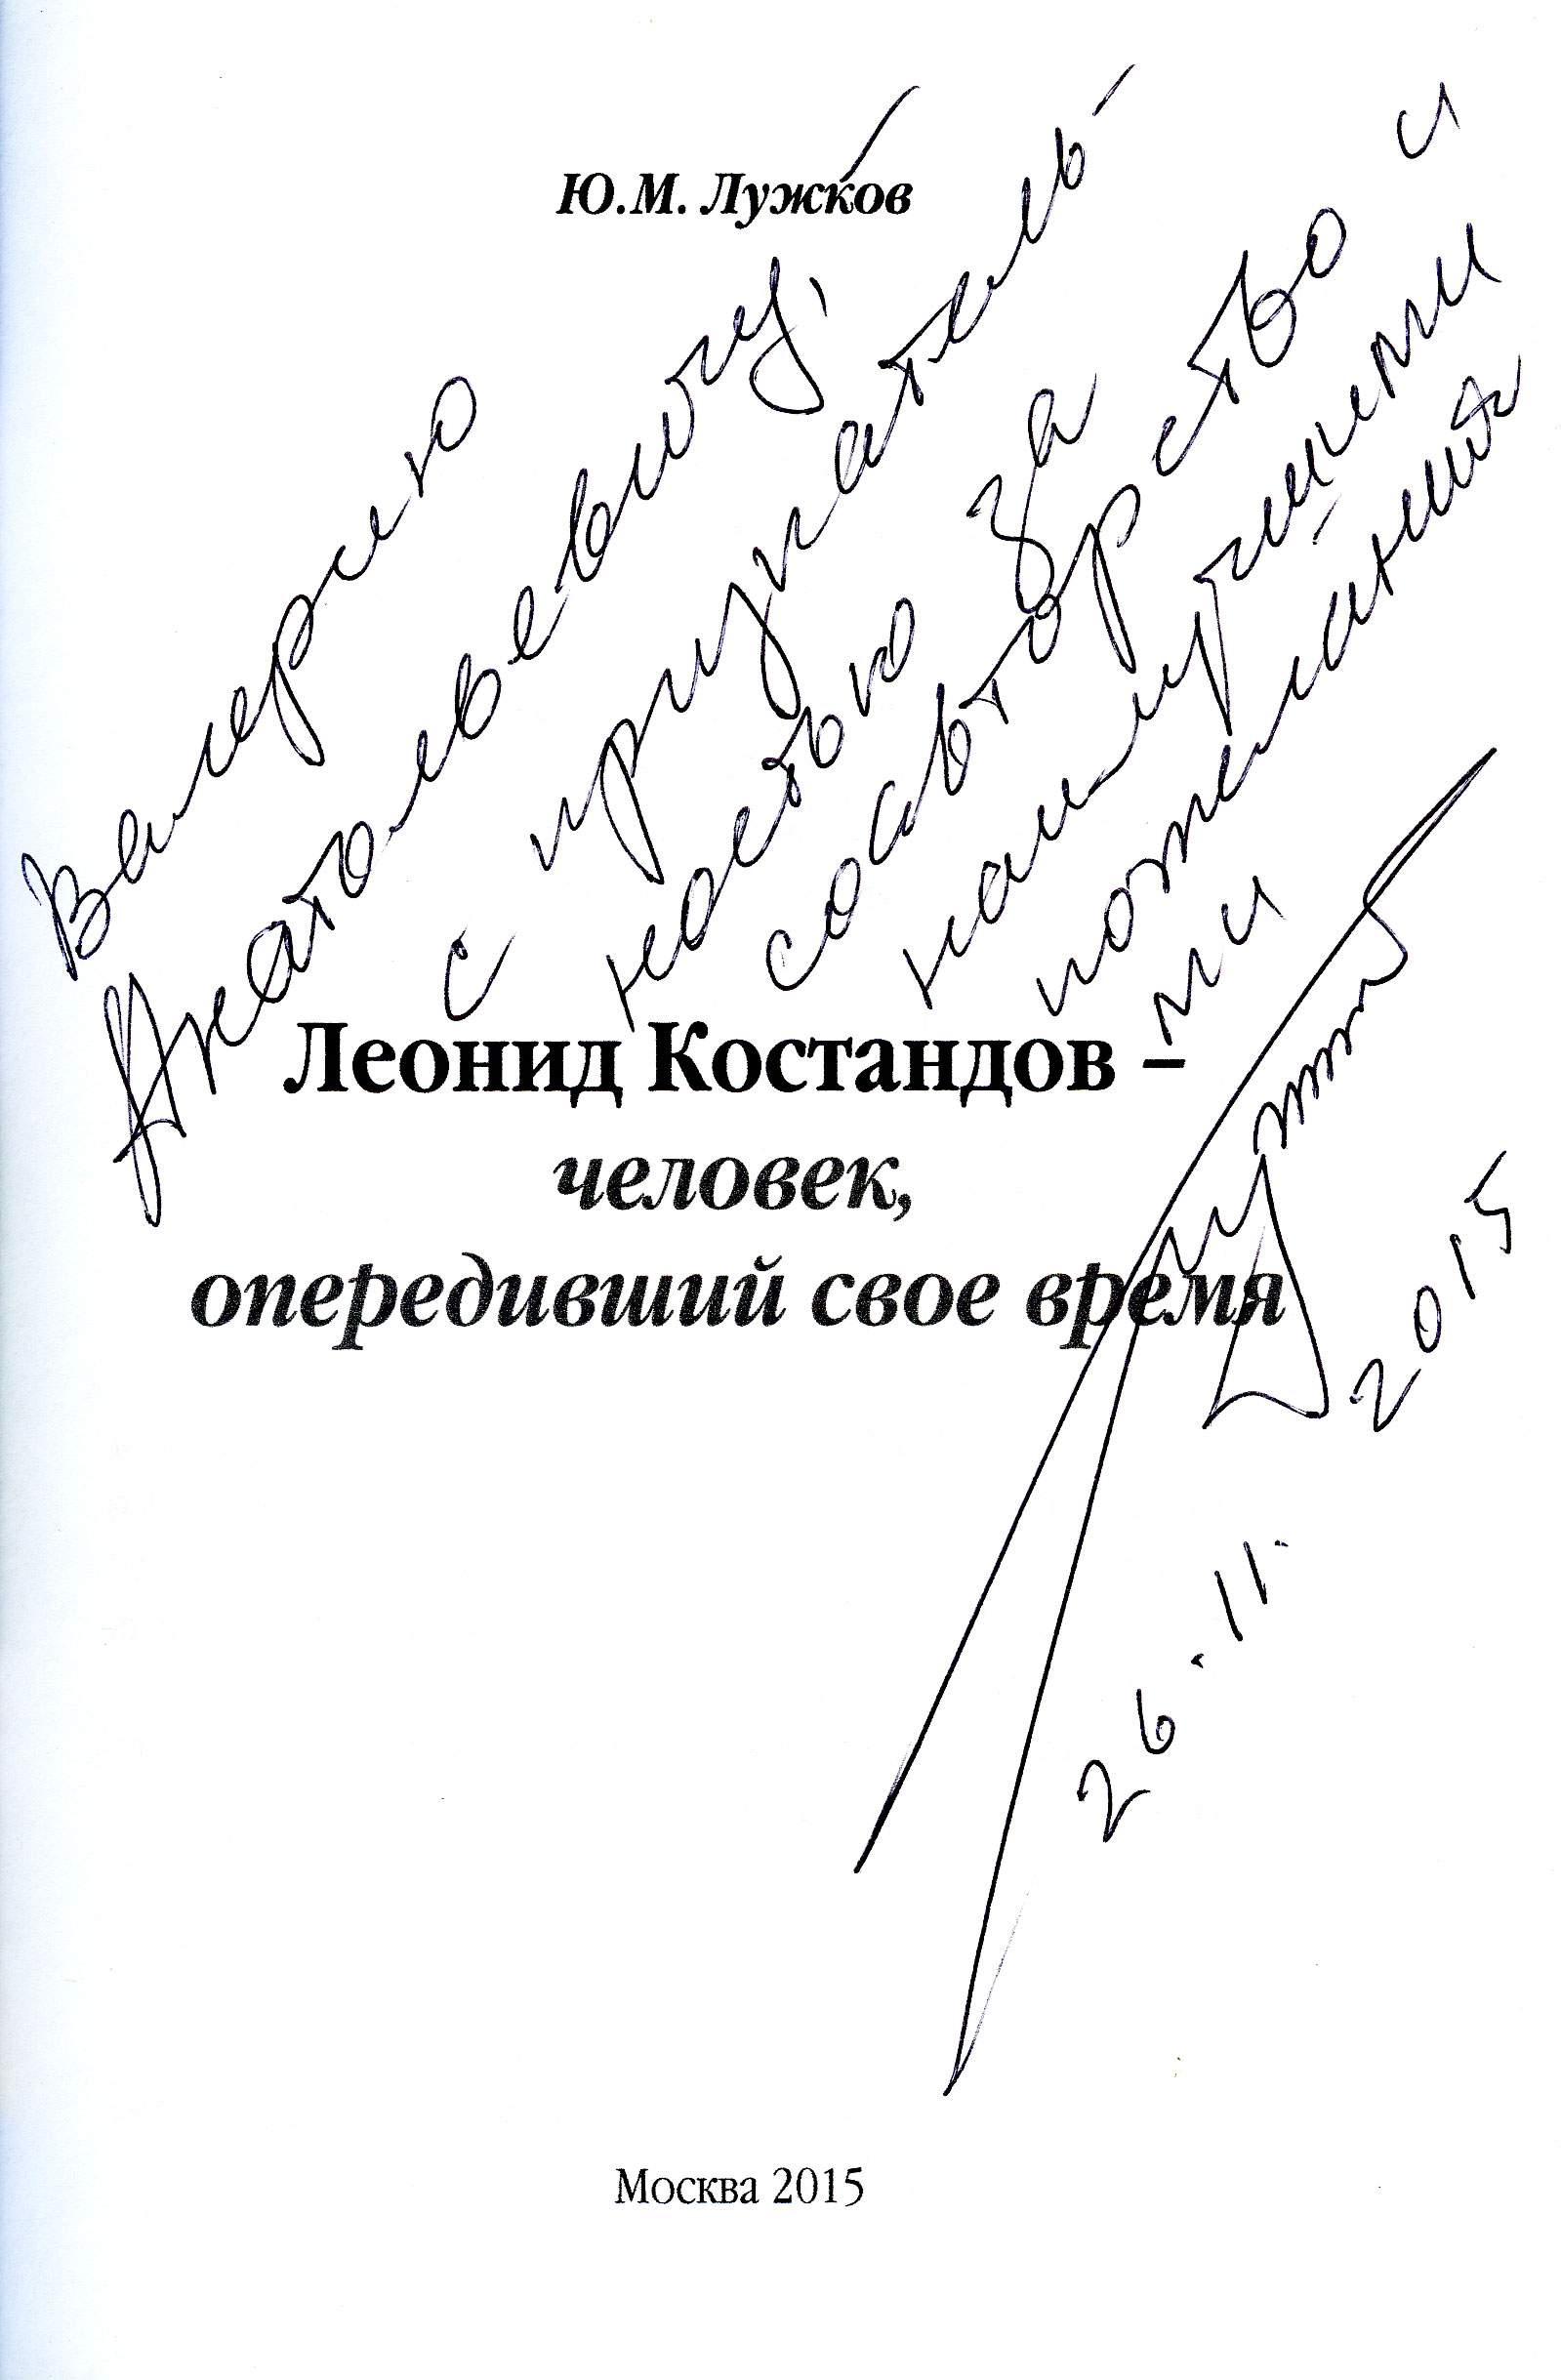 Ю.М. Лужков
Валерию
Анатольевичу,
с признатель-
ностью за
соавторство и
наилучшими
пожелания-
ми
Леонид Костандов –
человек,
опередивший свое время
26.11.2015
Москва 2015